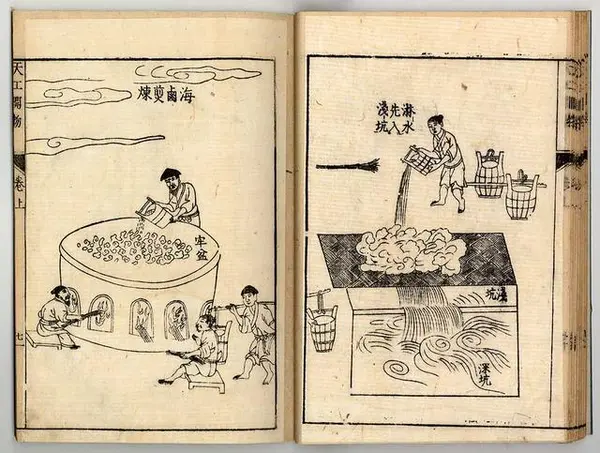 淋水
先入
淺坑
淺坑
深坑
海鹵煎煉
牢盆
天工開物
卷上
七一